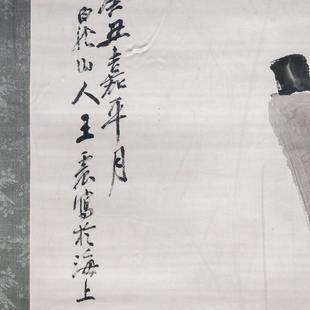 丑嘉平月
白龍山人王震寫於海上